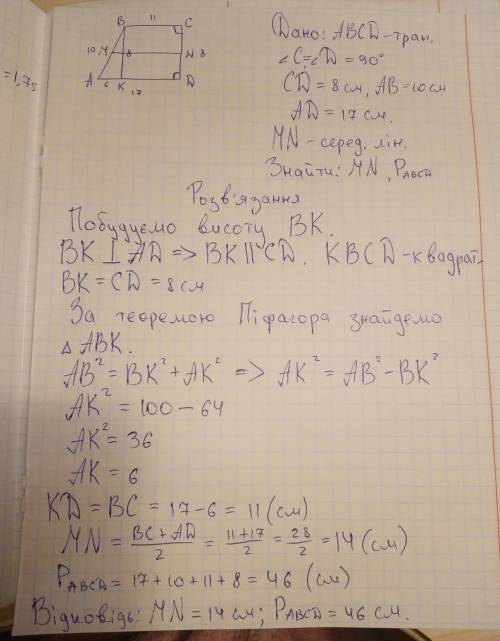 B 11 C
10 M 8 N 8
A 6 K D
17
= 1,75
Дано: ABCD - трап.
∠C=∠D = 90°
CD = 8 см, AB = 10 см
AD = 17 см.
MN - серед. лін.
Знайти: MN, P_ABCD
Розв'язання
Побудуємо висоту BK.
BK ⊥ AD => BK || CD. KBCD - квадрат.
BK = CD = 8 см
За теоремою Піфагора знайдемо
△ ABK.
AB² = BK² + AK² => AK² = AB² - BK²
AK² = 100 - 64
AK² = 36
AK = 6
KD = BC = 17 - 6 = 11 (см)
MN = (BC + AD)/2 = (11+17)/2 = 28/2 = 14 (см)
P_ABCD = 17 + 10 + 11 + 8 = 46 (см)
Відповідь: MN = 14 см; P_ABCD = 46 см.